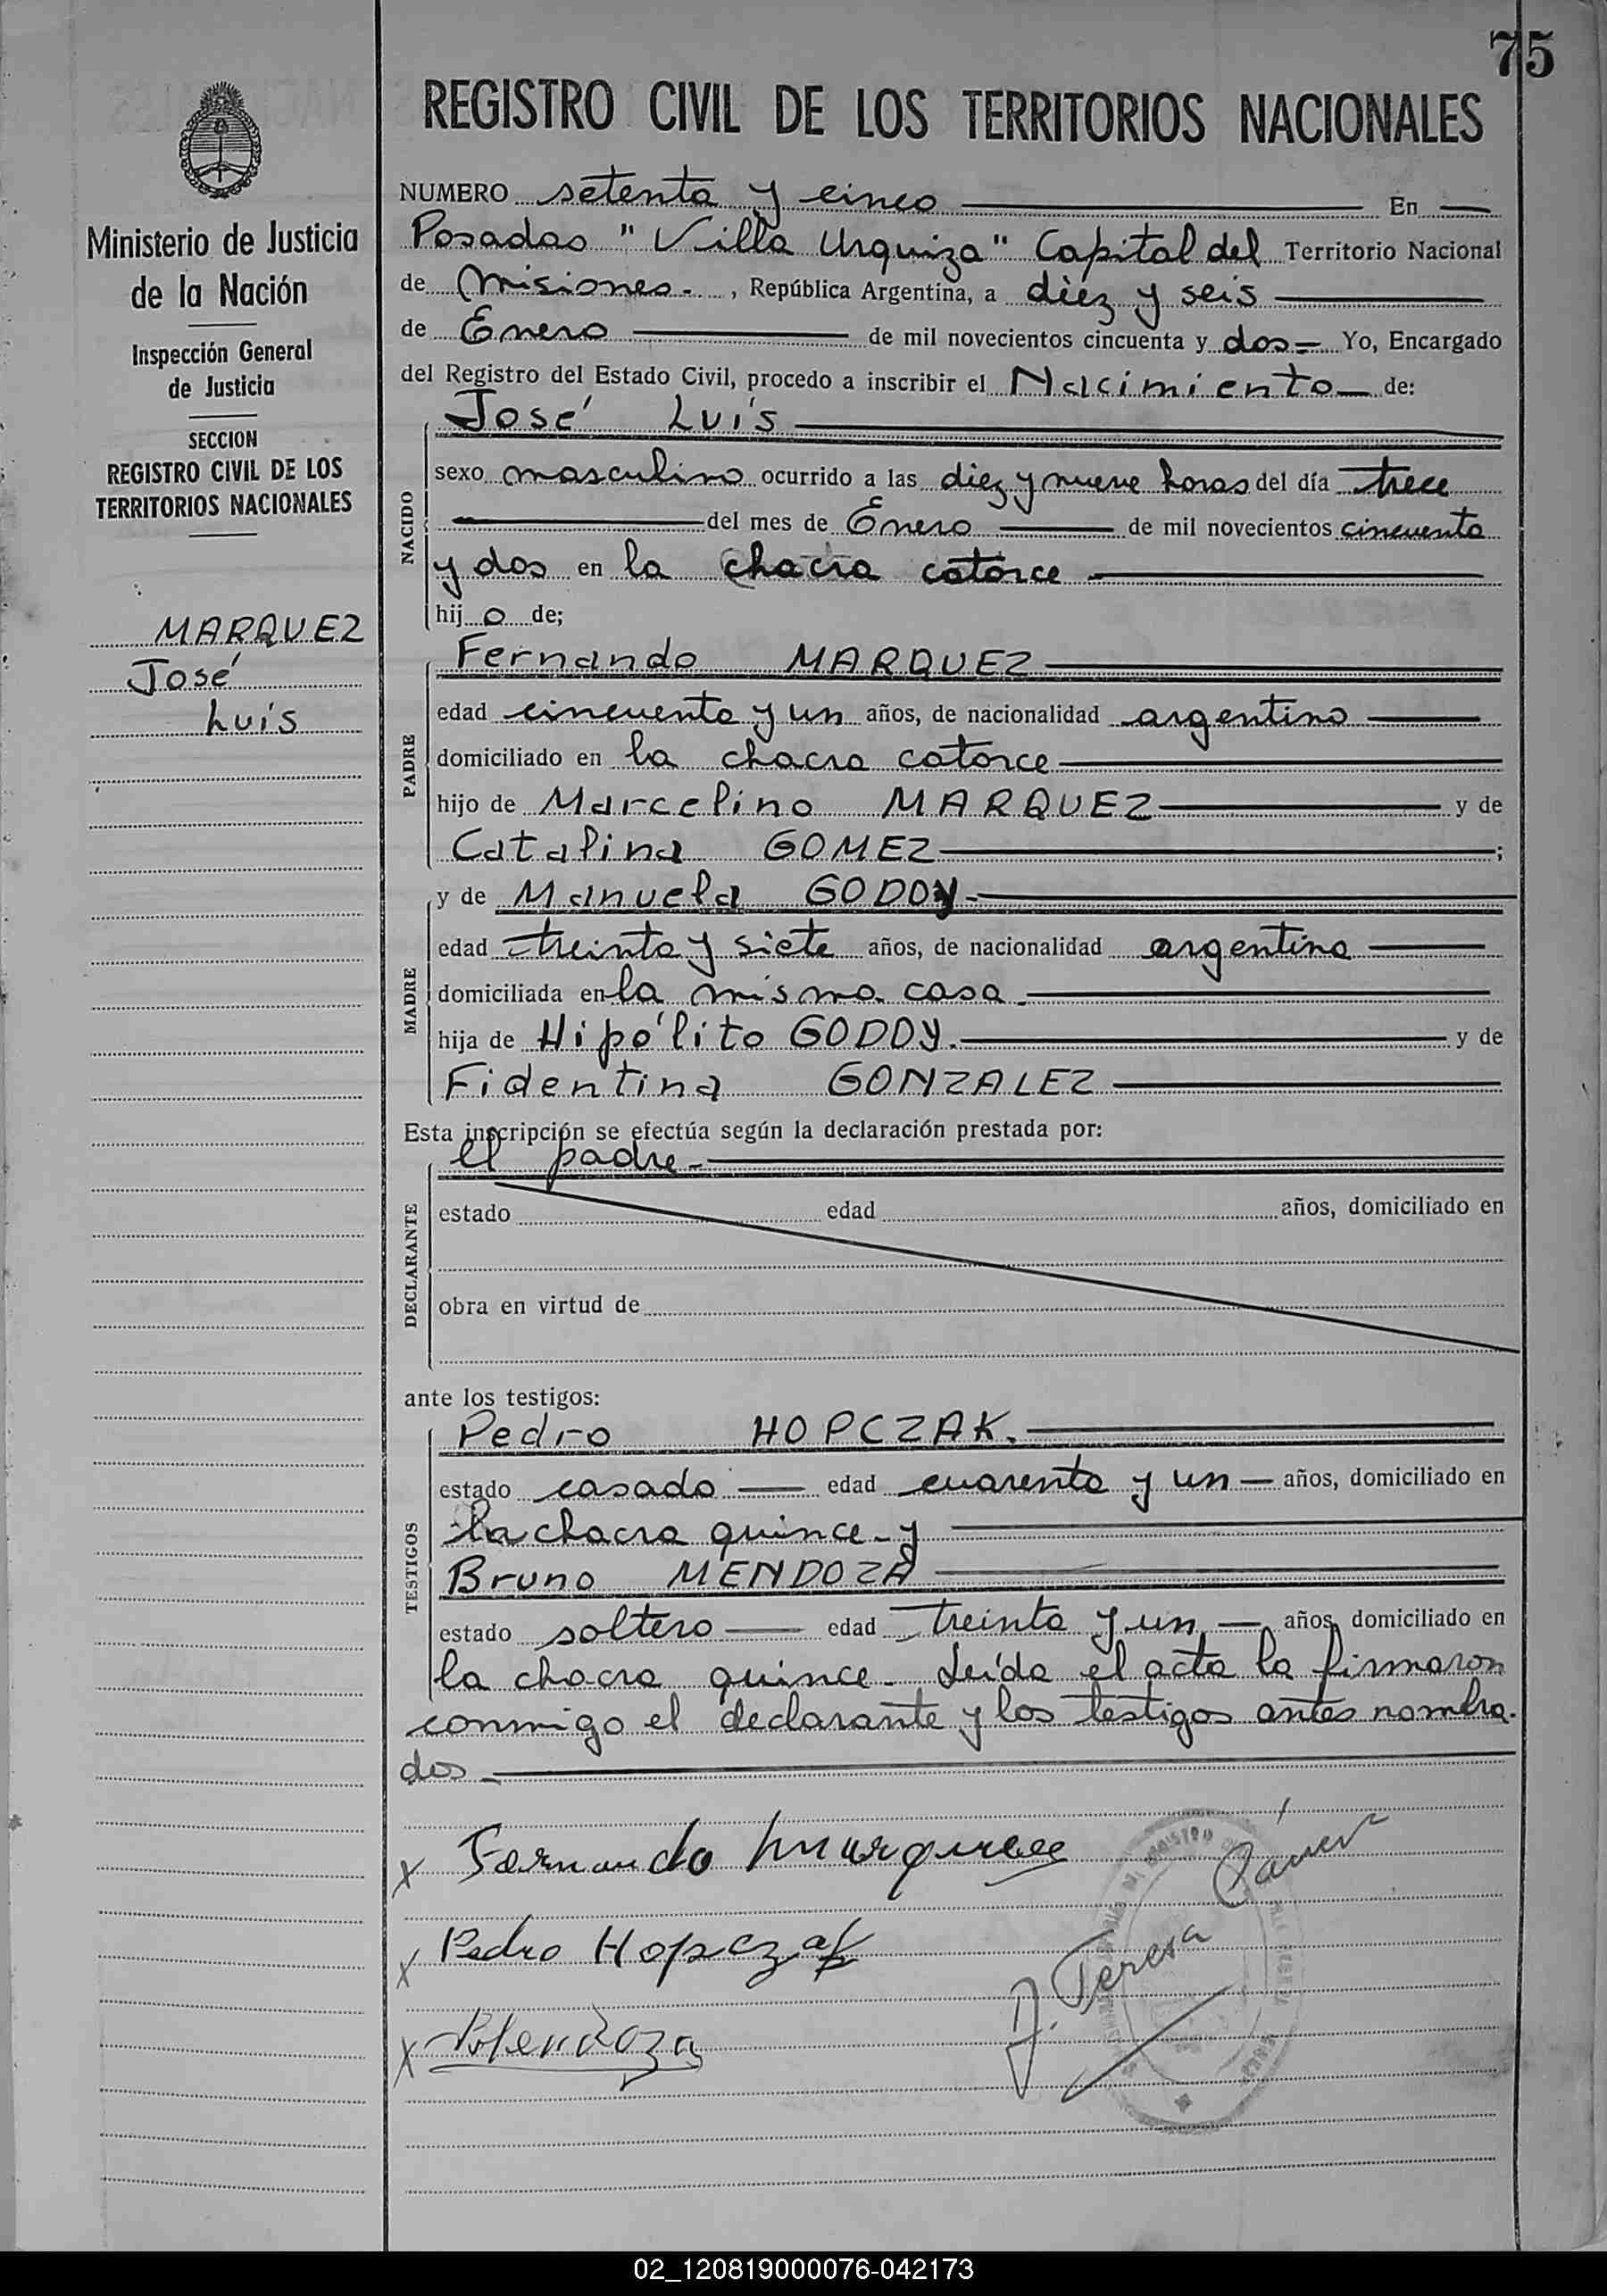 75
REGISTRO CIVIL DE LOS TERRITORIOS NACIONALES
Ministerio de Justicia
de la Nación
Inspección General
de Justicia
SECCION
REGISTRO CIVIL DE LOS
TERRITORIOS NACIONALES
MARQUEZ
José
Luís
NUMERO setenta y cinco En
Posadas "Villa Urquiza" Capital del Territorio Nacional
de Misiones- , República Argentina, a diez y seis
de Enero de mil novecientos cincuenta y dos= Yo, Encargado
del Registro del Estado Civil, procedo a inscribir el Nacimiento de:
NACIDO
José Luís
sexo masculino ocurrido a las diez y nueve horas del día trece
del mes de Enero de mil novecientos cincuenta
y dos en la chacra catorce
hij o de;
PADRE
Fernando MARQUEZ
edad cincuenta y un años, de nacionalidad argentino
domiciliado en la chacra catorce
hijo de Marcelino MARQUEZ y de
Catalina GOMEZ ;
MADRE
y de Manuela GODOY-
edad treinta y siete años, de nacionalidad argentina
domiciliada en la misma casa-
hija de Hipólito GODOY. y de
Fidentina GONZALEZ
Esta inscripción se efectúa según la declaración prestada por:
DECLARANTE
el padre-
estado edad años, domiciliado en
obra en virtud de
ante los testigos:
TESTIGOS
Pedro HOPCZAK.
estado casado edad cuarenta y un años, domiciliado en
la chacra quince- y
Bruno MENDOZA
estado soltero edad treinta y un años, domiciliado en
la chacra quince- Leída el acta la firmaron
conmigo el declarante y los testigos antes nombra-
dos-
x Fernando Marquez
x Pedro Hopczak
x Mendoza
Teresa
02_120819000076-042173